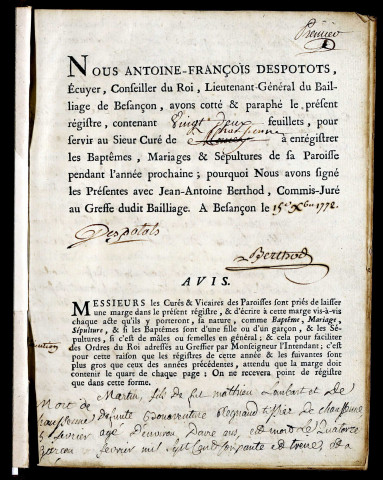 Premier
1
NOUS ANTOINE-FRANÇOIS DESPOTOTS,
Écuyer, Conseiller du Roi, Lieutenant-Général du Bail-
liage de Besançon, avons cotté & paraphé le présent
régistre, contenant Vingt deux feuillets, pour
servir au Sieur Curé de à enrégistrer
les Baptêmes, Mariages & Sépultures de sa Paroisse
pendant l'année prochaine; pourquoi Nous avons signé
les Présentes avec Jean-Antoine Berthod, Commis-Juré
au Greffe dudit Bailliage. A Besançon le 15e Xbre 1772.
Despotots
Berthod
AVIS.
MESSIEURS les Curés & Vicaires des Paroisses sont priés de laisser
une marge dans le présent régistre, & d'écrire à cette marge vis-à-vis
chaque acte qu'ils y porteront, sa nature, comme Baptême, Mariage,
Sépulture, & si les Baptêmes sont d'une fille ou d'un garçon, & les Sé-
pultures, si c'est de mâles ou femelles en général; & cela pour faciliter
des Ordres du Roi adressés au Greffier par Monseigneur l'Intendant; c'est
pour cette raison que les régistres de cette année & les suivantes sont
plus gros que ceux des années précédentes, attendu que la marge doit
contenir le quart de chaque page; On ne recevra point de régistre
que dans cette forme.
Mort de Martin, fils de feu matthieu et De
defunte Bonaventure de chaussenne
fevrier agé d'environ ans, est mort le quatorze
fevrier mil sept cent soixante et treize et a